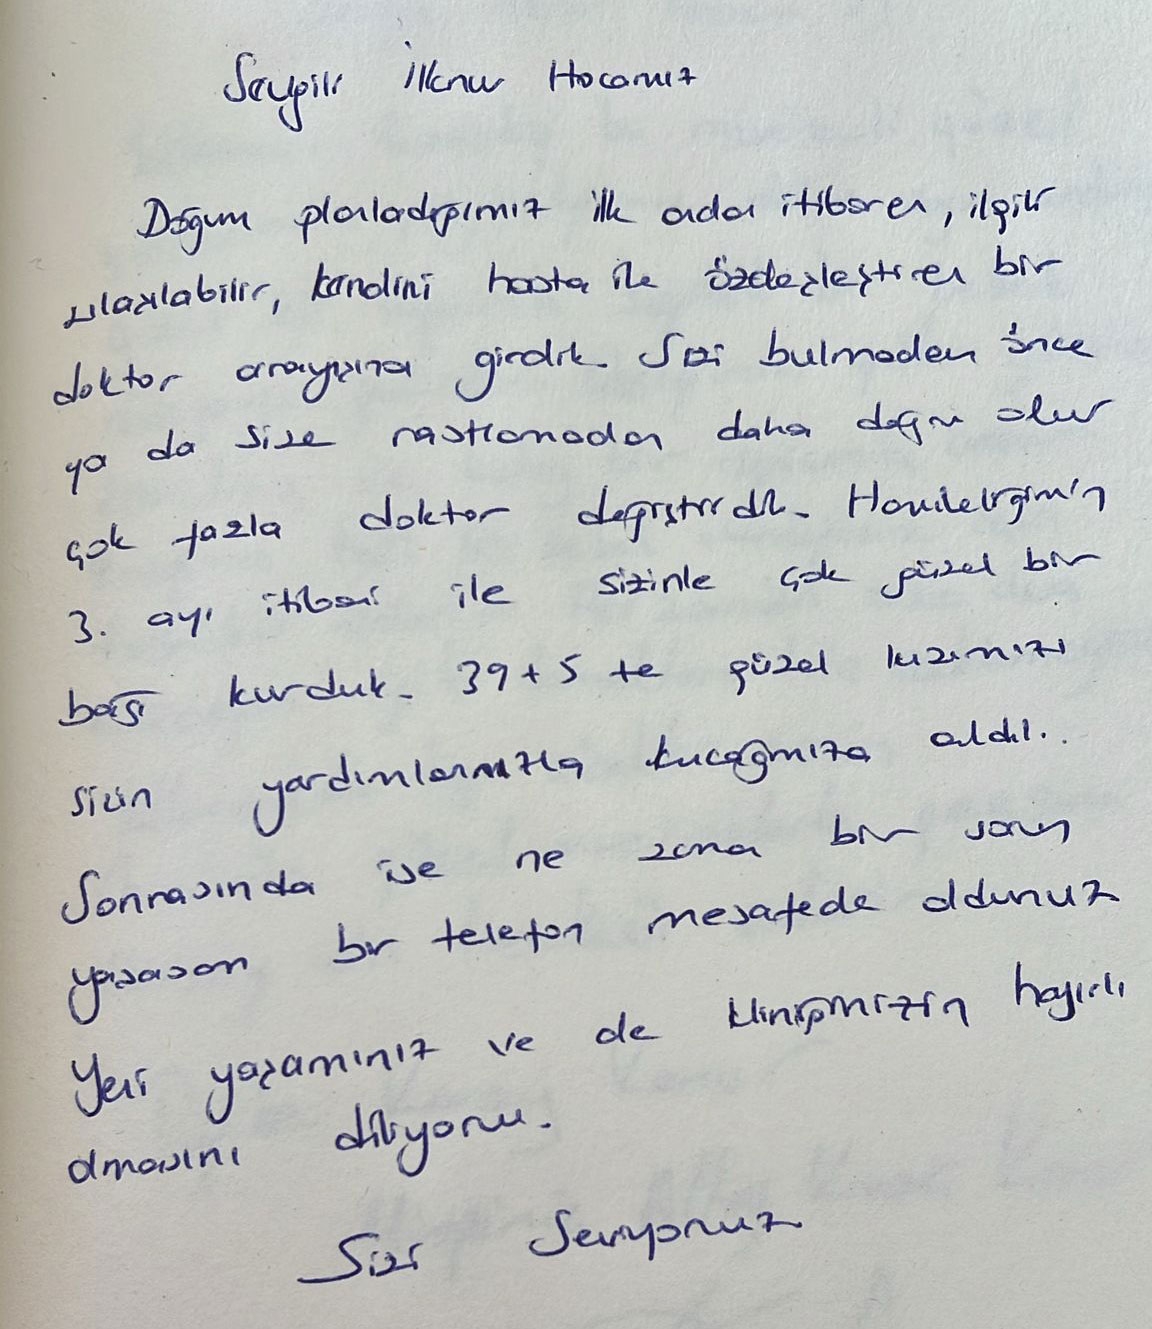 Sevgili İlknur Hocamız
Doğum planladığımız ilk andan itibaren, ilgili
ulaşılabilir, kendini hasta ile özdeşleştiren bir
doktor arayışına girdik. Sizi bulmadan önce
ya da size rastlamadan daha doğru olur
çok fazla doktor değiştirdik. Hamileliğimin
3. ayı itibari ile sizinle çok güzel bir
bağ kurduk. 39+5 te güzel kızımızı
sizin yardımlarınızla kucağımıza aldık.
Sonrasında ise ne zaman bir sorun
yaşasam bir telefon mesafede oldunuz
Yeni yaşamınız ve de kliniğimizin hayırlı
olmasını diliyoruz.
Sizi Seviyoruz